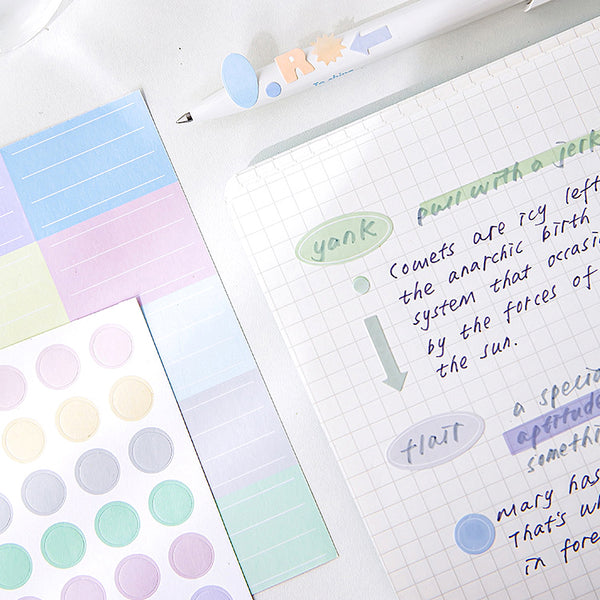 R
pull with a jerk
yank
Comets are icy left
the anarchic birth
system that occasi
by the forces of
the sun.
a specia
flait
aptitude
somethi
Mary has
That's wh
in fore